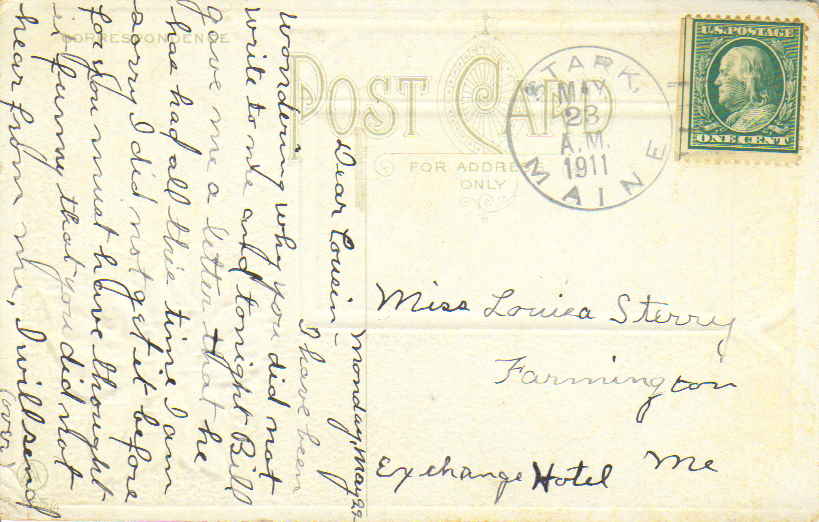 CORRESPONDENCE
POST CARD
FOR ADDRESS
ONLY
STARK,
MAY
23
A.M.
1911
MAINE
U.S. POSTAGE
ONE CENT
Monday, May 22
Dear Cousin –
I have been
wondering why you did not
write to me and tonight Bill
gave me a letter that he
has had all this time I am
sorry I did not get it before
for you must have thought
it funny that you did not
hear from me, I will send
(over)
Miss Louisa Sterry
Farmington
Exchange Hotel Me